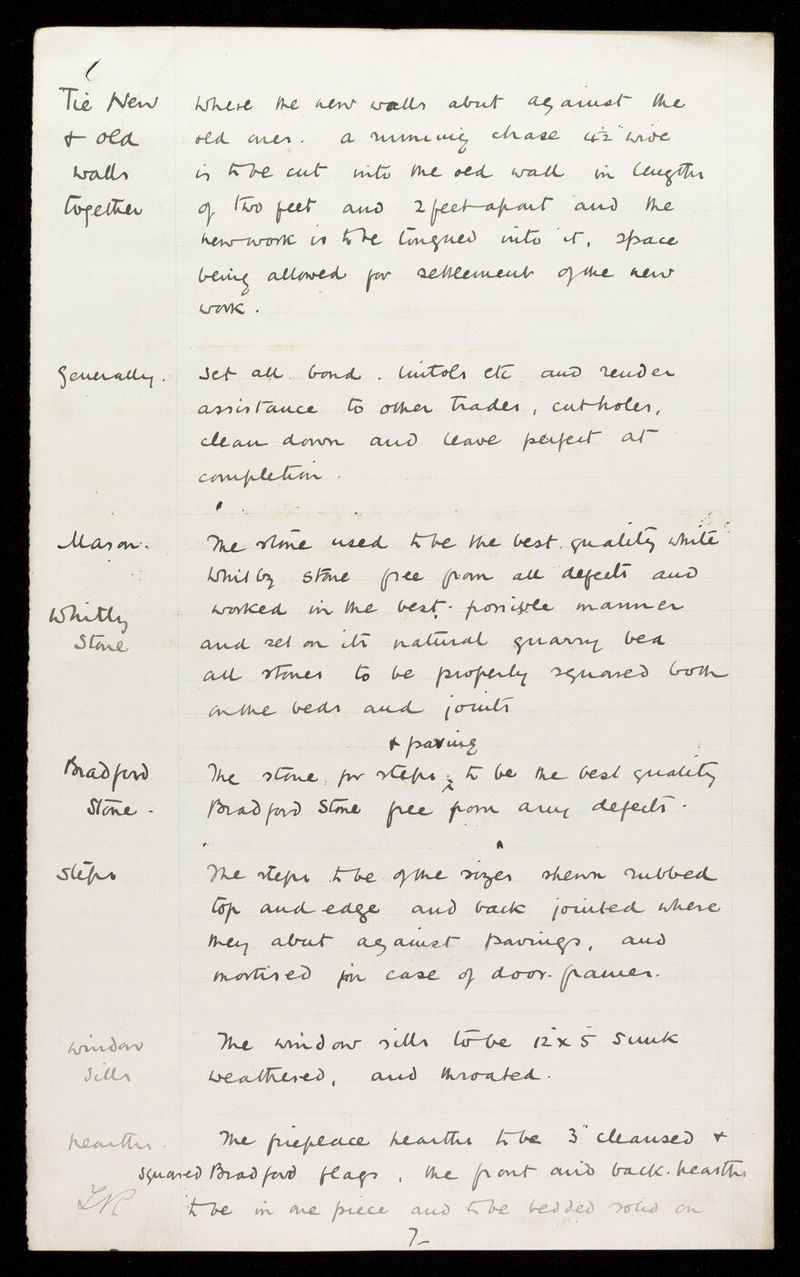 Tie New where the new walls abut against the
& old old ones. a running chase 4½" wide
walls is to be cut into the old wall in lengths
together of two feet and 2 feet apart and the
new work is to be tongued into it, space
being allowed for settlement of the new
work.
Generally. Set all bond. lintols etc and render
assistance to other trades, cut holes,
clean down and leave perfect at
completion.
Mason. The stone used to be the best quality white
Whitby stone free from all defects and
Whitby worked in the best possible manner
Stone and set on its natural quarry bed
all stones to be properly squared both
on the beds and joints
& paving
Bradford The stone for steps to be the best quality
Stone. Bradford Stone free from any defects.
Steps The steps to be of the sizes shewn rubbed
top and edge and back jointed where
they abut against pavings, and
mortised in case of door frames.
Window The window sills to be 12 x 5 sunk
Sills weathered, and throated.
hearths. The fireplace hearths to be 3" cleansed &
squared Bradford flags, the front and back hearths
to be in one piece and to be bedded solid on
7